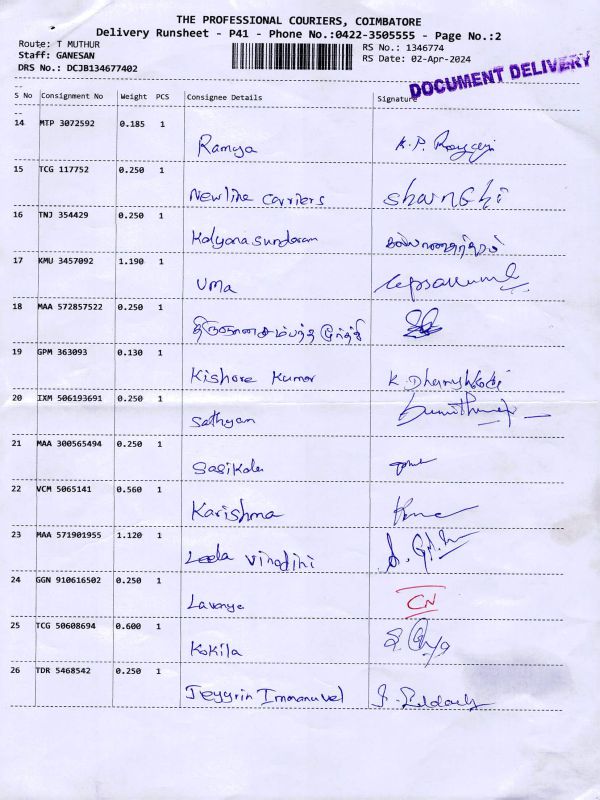 THE PROFESSIONAL COURIERS, COIMBATORE
Delivery Runsheet - P41 - Phone No.:0422-3505555 - Page No.:2
Route: T MUTHUR
RS No.: 1346774
Staff: GANESAN
RS Date: 02-Apr-2024
DRS No.: DCJB134677402
DOCUMENT DELIVERY
S No Consignment No Weight PCS Consignee Details Signature
14 MTP 3072592 0.185 1 Ramya
15 TCG 117752 0.250 1 Newline Carriers
16 TNJ 354429 0.250 1 Kalyana Sundaram
17 KMU 3457092 1.190 1 Uma
18 MAA 572857522 0.250 1
19 GPM 363093 0.130 1 Kishore Kumar
20 IXM 506193691 0.250 1 Sathyam
21 MAA 300565494 0.250 1 Sasikala
22 VCM 5065141 0.560 1 Karishma
23 MAA 571901955 1.120 1 Vinodini
24 GGN 910616502 0.250 1 Lavanya CN
25 TCG 50608694 0.600 1 Kokila
26 TDR 5468542 0.250 1 Jeyyrin Immanuvel